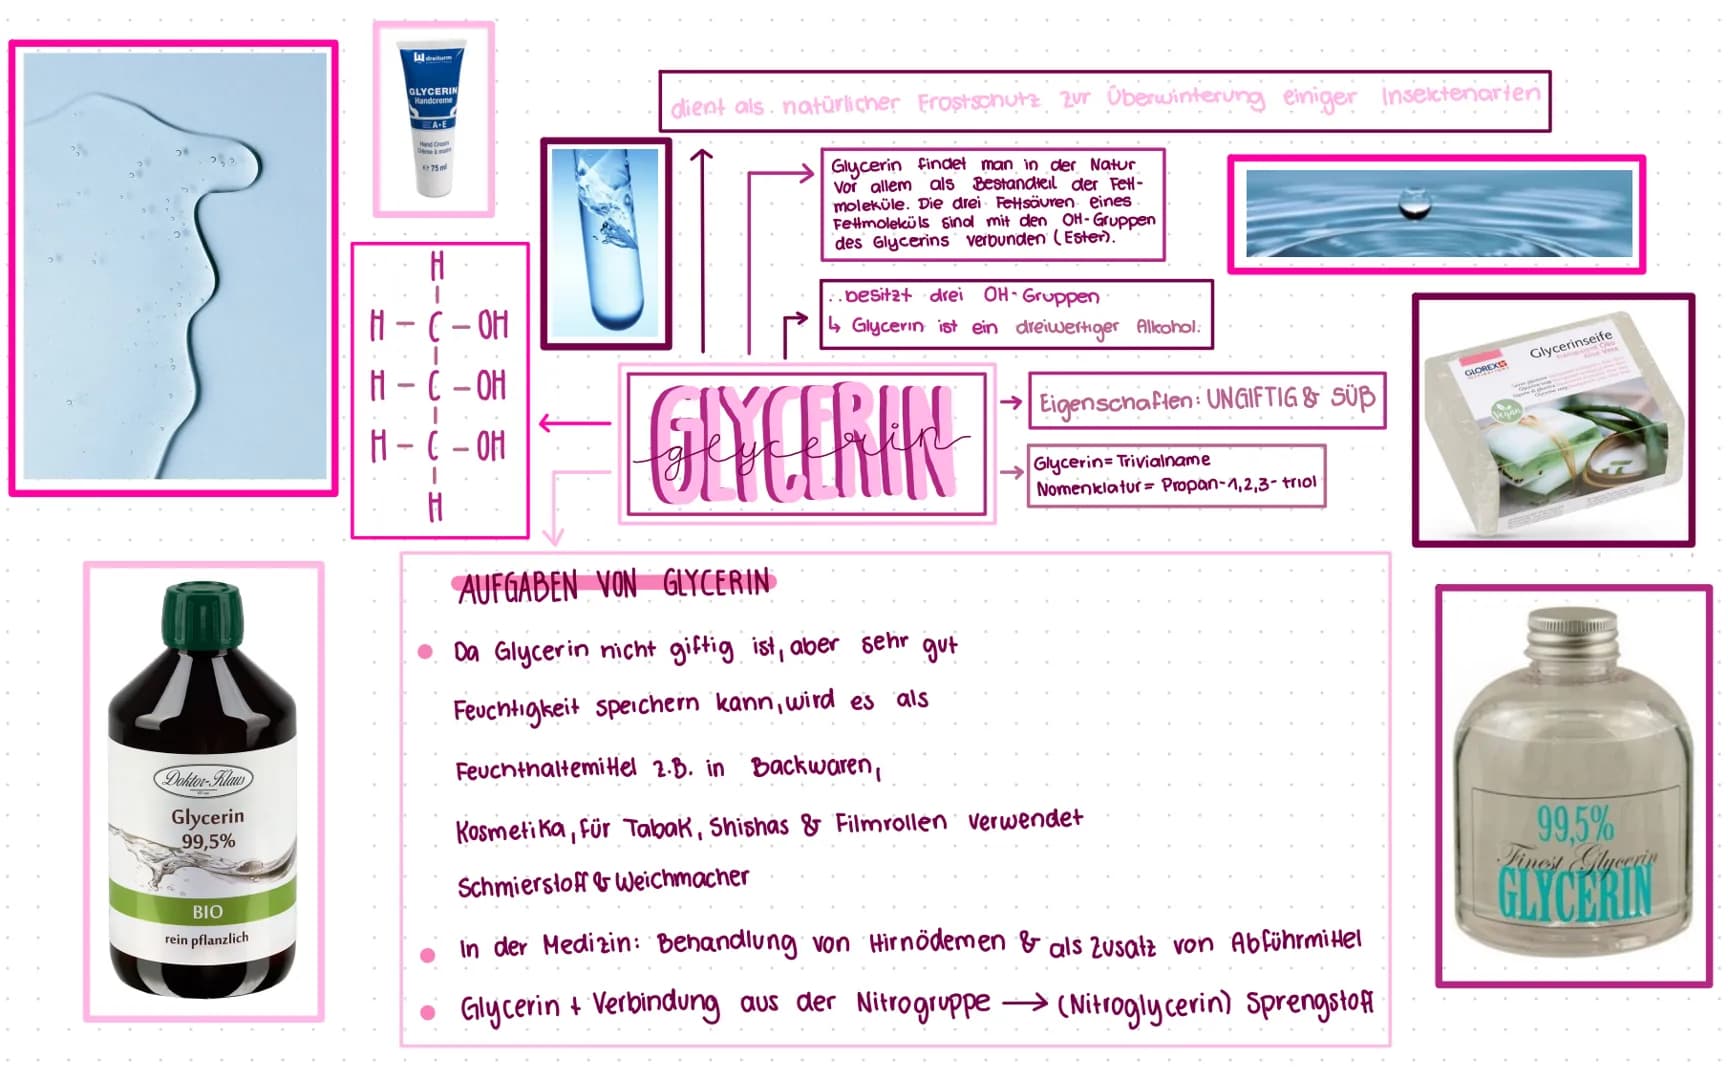 dreiturm
GLYCERIN
Handcreme
A+E
Hand Cream
Crème à mains
e 75 ml
dient als natürlicher Frostschutz zur Überwinterung einiger Insektenarten
Glycerin findet man in der Natur
vor allem als Bestandteil der Fett-
moleküle. Die drei Fettsäuren eines
Fettmoleküls sind mit den OH-Gruppen
des Glycerins verbunden (Ester).
..besitzt drei OH-Gruppen
↳ Glycerin ist ein dreiwertiger Alkohol.
H
H – C – OH
H – C – OH
H – C – OH
H
GLYCERIN
glycerin
Eigenschaften: UNGIFTIG & SÜß
Glycerin = Trivialname
Nomenklatur = Propan-1,2,3-triol
Glycerinseife
GLOREX
Vegan
AUFGABEN VON GLYCERIN
Da Glycerin nicht giftig ist, aber sehr gut
Feuchtigkeit speichern kann, wird es als
Feuchthaltemittel z.B. in Backwaren,
Kosmetika, für Tabak, Shishas & Filmrollen verwendet
Schmierstoff & Weichmacher
In der Medizin: Behandlung von Hirnödemen & als Zusatz von Abführmittel
Glycerin + Verbindung aus der Nitrogruppe → (Nitroglycerin) Sprengstoff
Doktor-Klaus
Glycerin
99,5%
BIO
rein pflanzlich
99,5%
Finest Glycerin
GLYCERIN